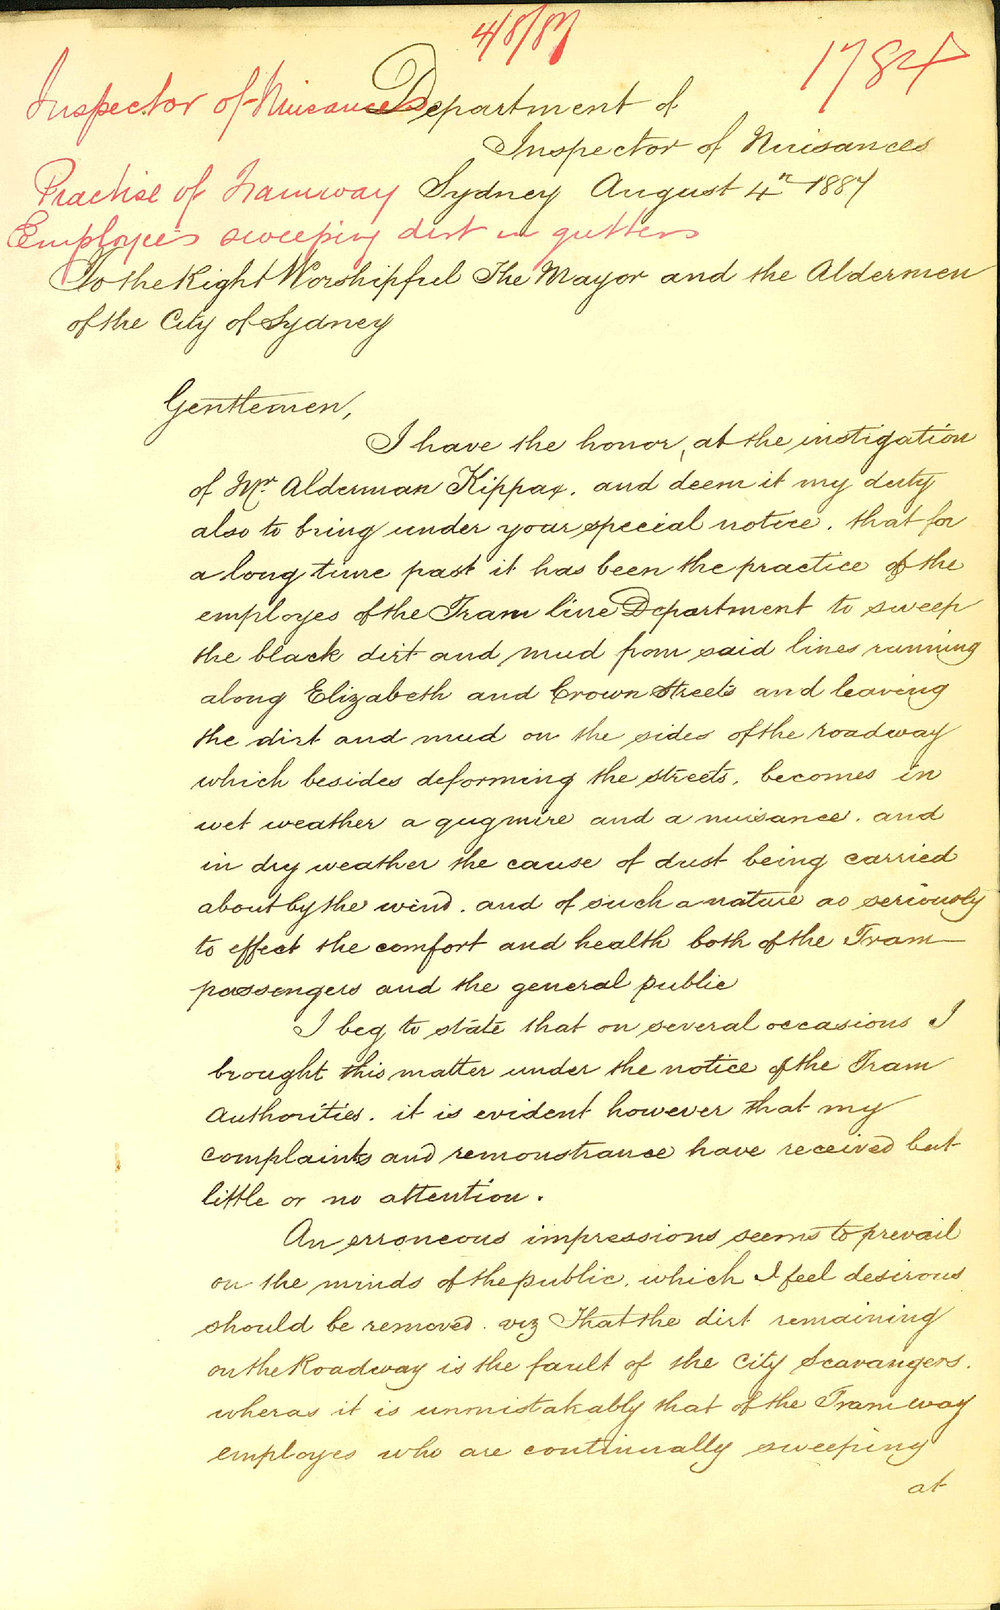 4/8/87
1784
Inspector of Nuisances
Department of
Inspector of Nuisances
Practise of Tramway
Sydney August 4th 1887
Employees sweeping dirt in gutters
To the Right Worshipful The Mayor and the Aldermen
of the City of Sydney
Gentlemen,
I have the honor, at the instigation
of Mr. Alderman Kippax. and deem it my duty
also to bring under your special notice. that for
a long time past it has been the practice of the
employes of the Tram line Department to sweep
the black dirt and mud from said lines running
along Elizabeth and Crown Streets and leaving
the dirt and mud on the sides of the roadway
which besides deforming the streets, becomes in
wet weather a qugmire and a nuisance. and
in dry weather the cause of dust being carried
about by the wind. and of such a nature as seriously
to effect the comfort and health both of the Tram
passengers and the general public
I beg to state that on several occasions I
brought this matter under the notice of the Tram
Authorities. it is evident however that my
complaints and remonstrance have received but
little or no attention.
An erroneous impressions seems to prevail
on the minds of the public, which I feel desirous
should be removed. viz That the dirt remaining
on the Roadway is the fault of the City Scavangers.
wheras it is unmistakably that of the Tramway
employes who are continually sweeping
at